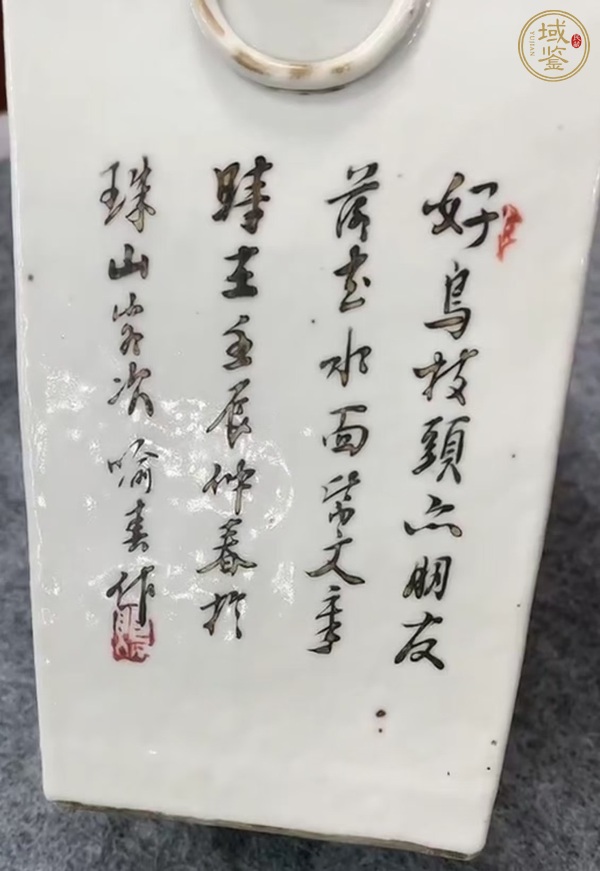 好鳥枝頭亦朋友
落花水面皆文章
時在壬辰仲春於
珠山客次喻春作
域鉴
YUJIAN